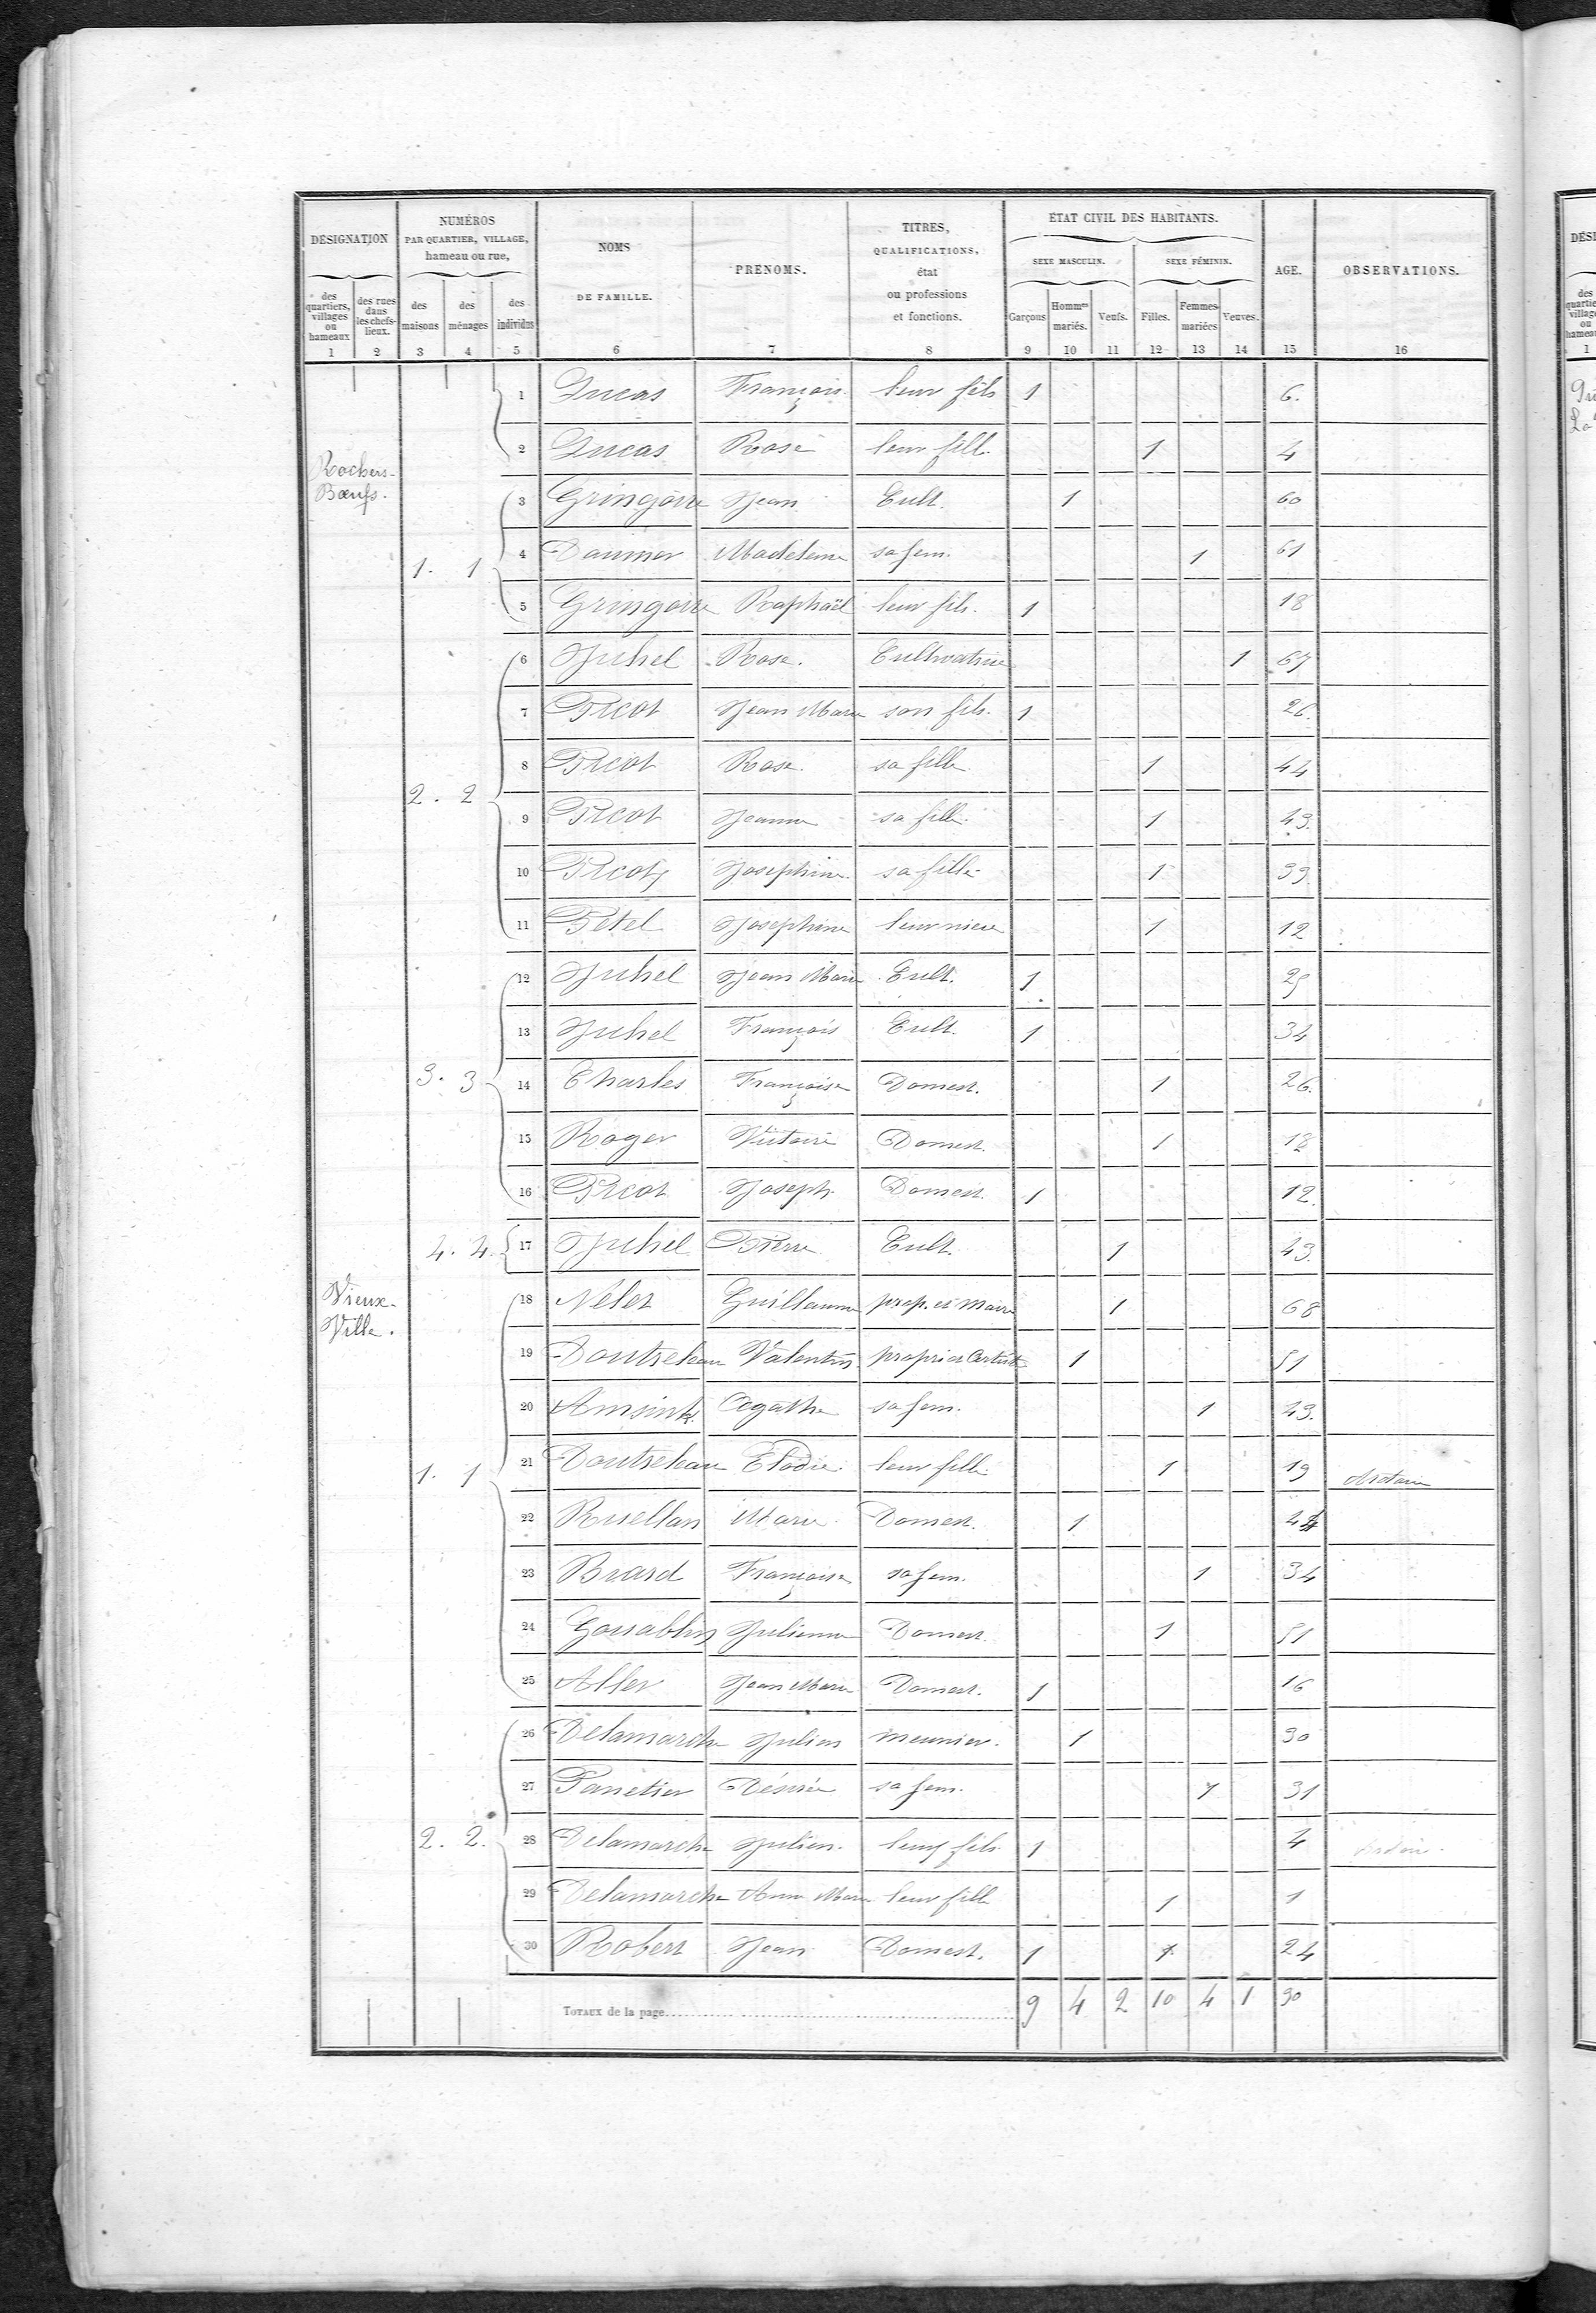 DÉSIGNATION
NUMÉROS
PAR QUARTIER, VILLAGE,
hameau ou rue,
NOMS
DE FAMILLE.
PRÉNOMS.
TITRES,
QUALIFICATIONS,
état
ou professions
et fonctions.
ÉTAT CIVIL DES HABITANTS.
SEXE MASCULIN. SEXE FÉMININ.
AGE.
OBSERVATIONS.
des quartiers, villages ou hameaux
des rues dans les chefs-lieux.
des maisons
des ménages
des individus
Garçons Homm.es mariés. Veufs. Filles. Femmes mariées Veuves.
1 2 3 4 5 6 7 8 9 10 11 12 13 14 15 16
1 Ducas François leur fils 1 6.
2 Ducas Rose leur fill. 1 4
Rochers-
Bœufs.
3 Gringoire Jean Cult. 1 60
1. 1 4 Daumer Madeleine sa fem. 1 61
5 Gringoire Raphaël leur fils. 1 18
6 Juhel Rose. Cultivatrice 1 67
7 Picot Jean Marie son fils. 1 26.
8 Picot Rose. sa fille 1 44
2. 2 9 Picot Jeanne sa fille 1 43.
10 Picot Josephine sa fille 1 39.
11 Petel Josephine leur niece 1 12
12 Juhel Jean Marie Cult. 1 25
13 Juhel François Cult. 1 34
3. 3 14 Charles Françoise Domest. 1 26.
15 Roger Victoire Domest. 1 18
16 Picot Joseph Domest. 1 12.
4. 4. 17 Juhel Pierre Cult. 1 43.
Vieux-
Ville.
18 Nélet Guillaume prop. et Maire 1 68
19 Doutreleau Valentin propri et Artiste 1 51
20 Amsink Agathe sa fem. 1 43.
1. 1 21 Doutreleau Elodie leur fille 1 19
22 Ruellan Marie Domest. 1 44
23 Brard Françoise sa fem. 1 34
24 Julienne Domest. 1 51
25 Aller Jean Marie Domest. 1 16
26 Delamarche Julien meunier. 1 30
27 Panetier Désirée sa fem. 1 31
2. 2. 28 Delamarche Julien. leur fils 1 4
29 Delamarche Anne Marie leur fille 1 1
30 Robert Jean Domest. 1 1 24
TOTAUX de la page 9 4 2 10 4 1 30